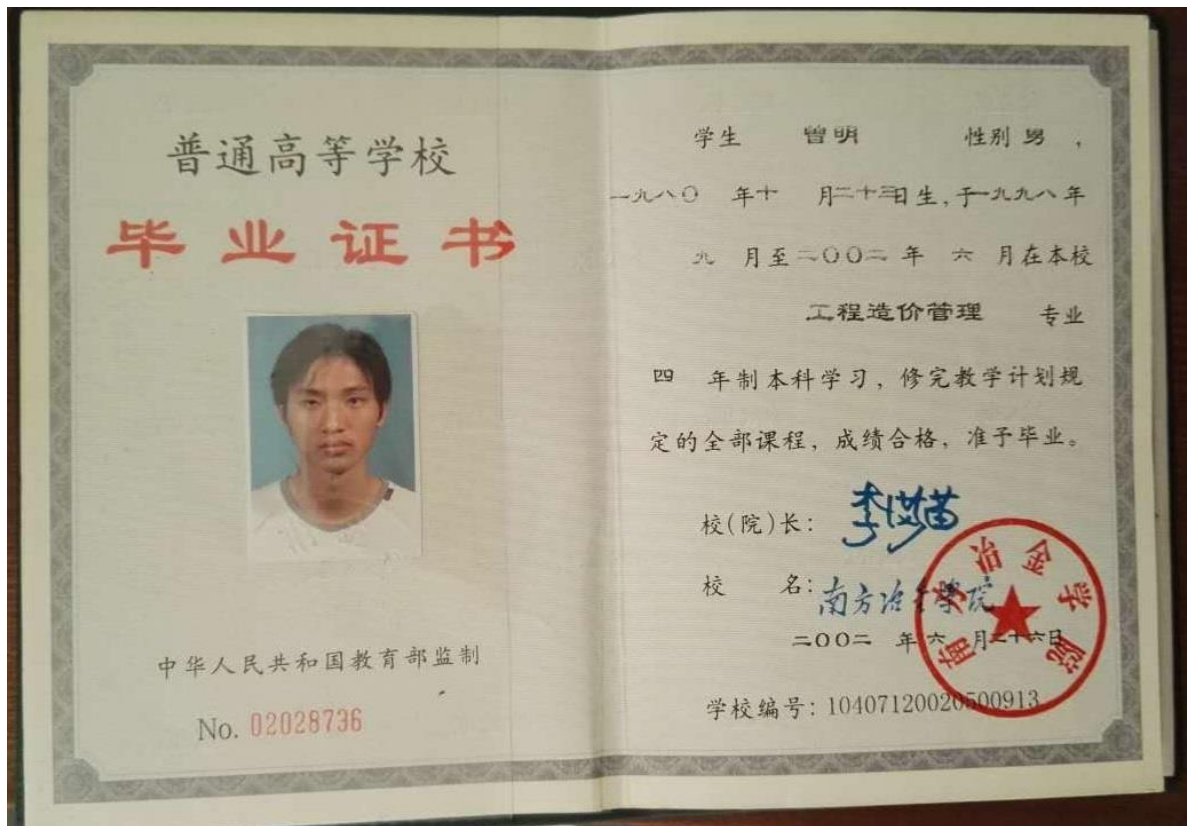 普通高等学校
毕业证书
中华人民共和国教育部监制
No. 02028736
学生 曾明 性别 男 ,
一九八〇 年十 月二十三日生,于一九九八年
九 月至二〇〇二 年 六 月在本校
工程造价管理 专业
四 年制本科学习, 修完教学计划规
定的全部课程, 成绩合格, 准予毕业。
校(院)长:
校 名: 南方冶金学院
二〇〇二 年六 月二十六日
学校编号: 10407120020500913
南方冶金学院